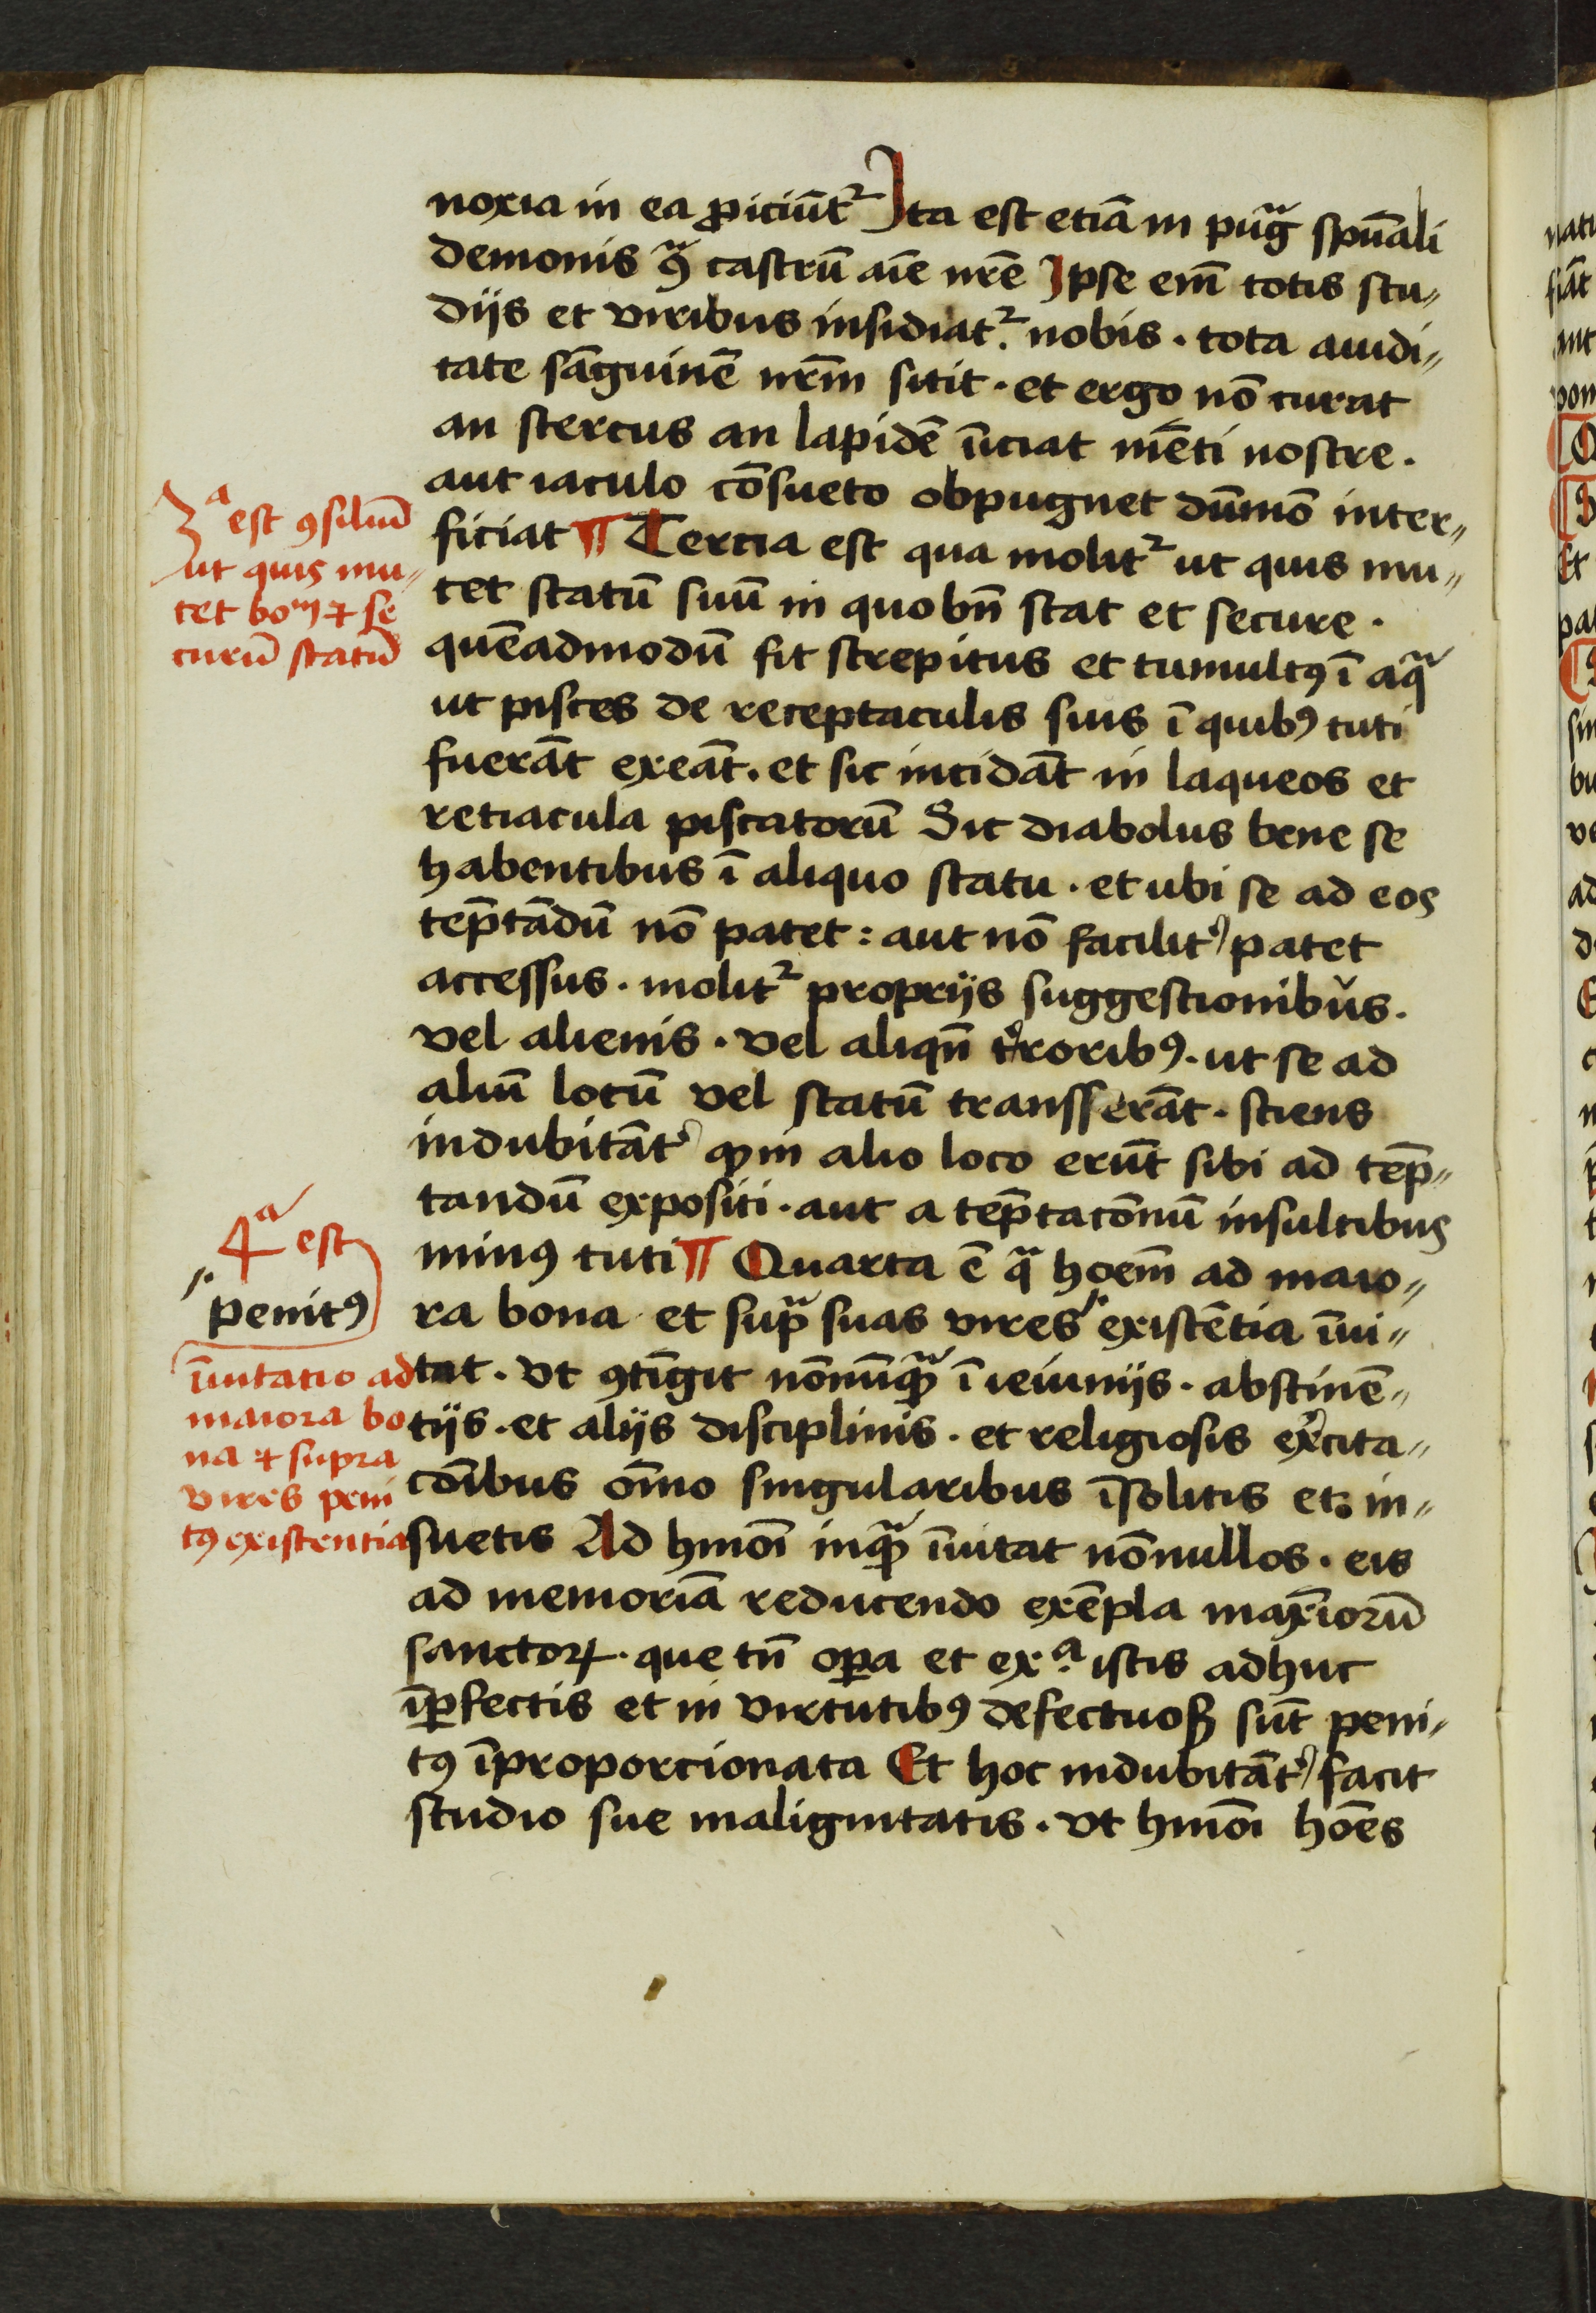 noxia in ea ꝓiciūtᷣ Ita est etiā in pugᷓ spūali
demonis ꝯᷓ castrū aīe nr̄e Ipse em̄ totis stu〃
dijs et viribus insidiatᷣ nobis · tota auidi〃
tate sāguinē nr̄m sitit · et ergo nō curat
an stercus an lapidē īiciat mēti nostre ·
aut iaculo cōsueto obpugnet dūmō inter〃
ficiat ¶ Tercia est qua molitᷣ ut quis mu〃
tet statū suū in quo bn̄ stat et secure ·
quēadmodū fit strepitus et tumultꝯ ī aqᷓ
ut pisces de receptaculis suis ī quibꝯ tuti
fuerāt exeāt · et sic incidāt in laqueos et
retiacula piscatorū Sic diabolus bene se
habentibus ī aliquo statu · et ubi se ad eos
tēptādū nō patet : aut nō facilit᾽ patet
accessus · molitᷣ proprijs suggestionibus ·
vel alienis · vel aliqn̄ t᾽roribꝯ · ut se ad
aliū locū vel statū transferāt · sciens
indubitāt᾽ ꝙ in alio loco erūt sibi ad tēp〃
tandū expositi · aut a tēptacōnū insultibus
minꝯ tuti ¶ Quarta ē qᷓ hoēm ad maio〃
ra bona et supᷓ suas vires existētia īui〃
tat · Vt ꝯtīgit nōnūqᷓ ī ieiunijs · abstinē〃
tijs · et alijs disciplinis · et religiosis ex᾽cita〃
cōibus oīno singularibus īsolitis et in〃
suetis Ad hmōi inqᷓ īuitat nōnullos · eis
ad memoriā reducendo exēpla maxīorū
sanctoꝝ · que tn̄ oꝑa et exᵃ· istis adhuc
īꝑfectis et in virtutibꝯ defectuoß sūt peni〃
tꝯ īproporcionata Et hoc indubitāt᾽ facit
studio sue malignitatis · Vt hmōi hoēs
3ᵃ est ꝯsiliū
ut quis mu〃
tet boᵐ ⁊ se
curū statū
4ᵃ est
penitꝯ
īuitatio ad
maiora bo
na ⁊ supra
vires peni
tꝯ existentia